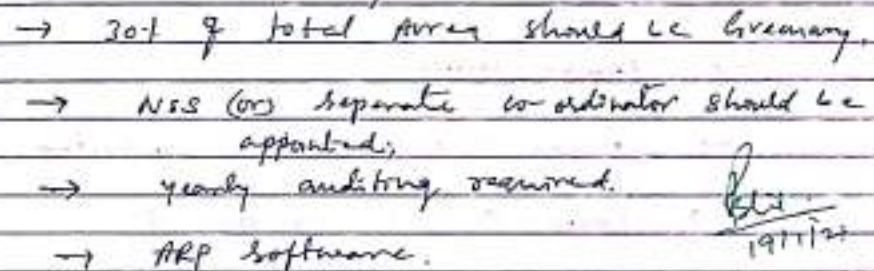 → 30% of total Area should be Greenary.
→ NSS (or) separate co-ordinator should be
appointed;
→ yearly auditing required.
→ ARP Software.